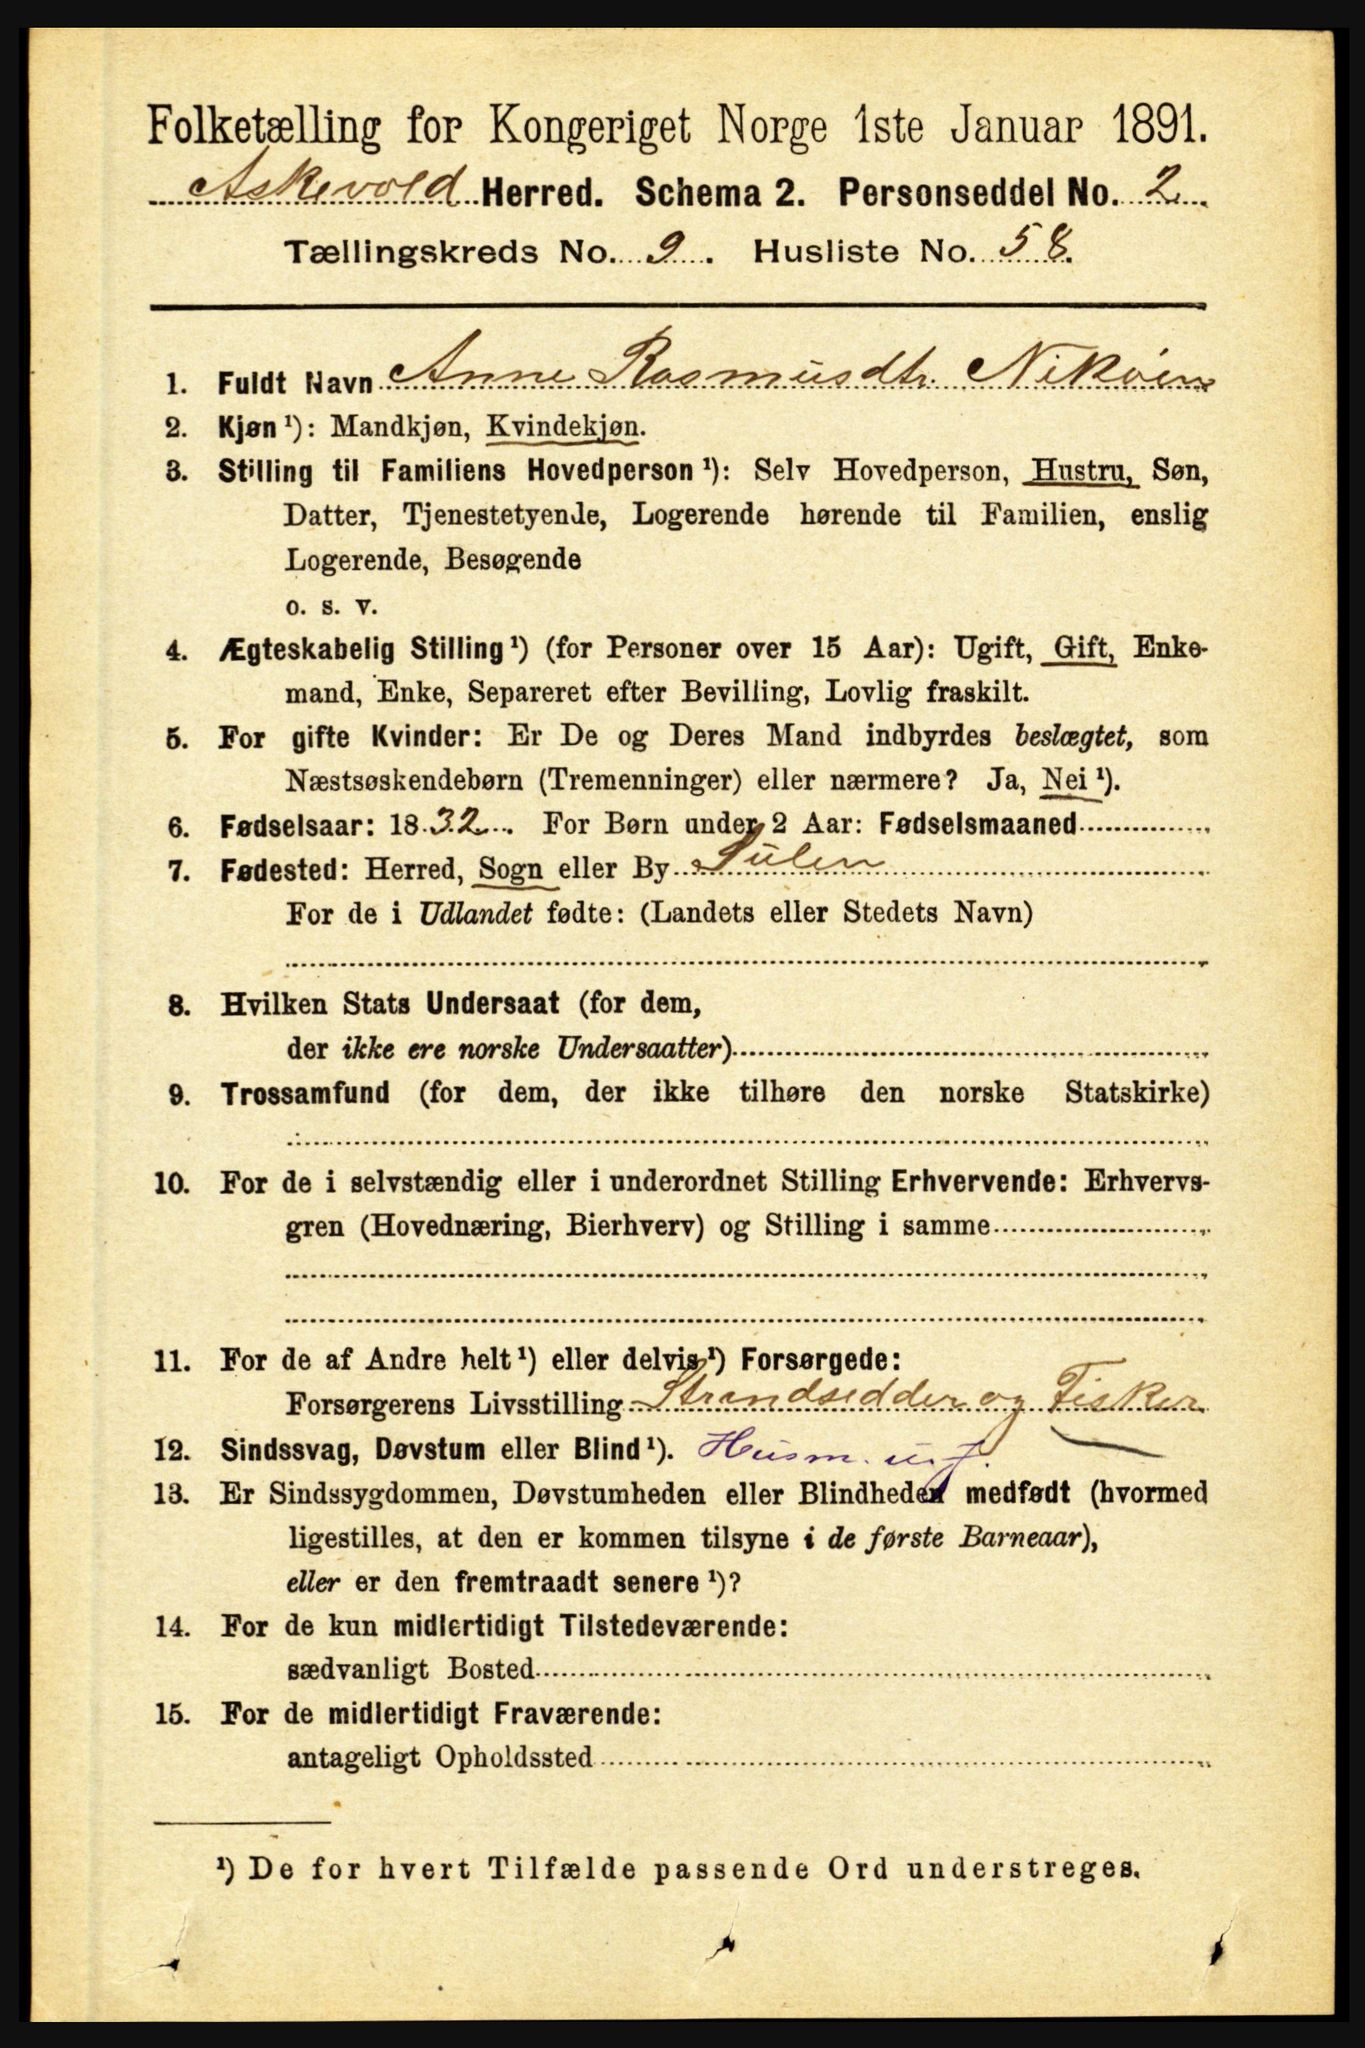 Folketælling for Kongeriget Norge 1ste Januar 1891.
Askevold Herred. Schema 2. Personseddel No. 2
Tællingskreds No. 9. Husliste No. 58.
1. Fuldt Navn Anne Rasmusdtr. Nikøien
2. Kjøn ¹): Mandkjøn, Kvindekjøn.
3. Stilling til Familiens Hovedperson ¹): Selv Hovedperson, Hustru, Søn,
Datter, Tjenestetyende, Logerende hørende til Familien, enslig
Logerende, Besøgende
o. s. v.
4. Ægteskabelig Stilling ¹) (for Personer over 15 Aar): Ugift, Gift, Enke-
mand, Enke, Separeret efter Bevilling, Lovlig fraskilt.
5. For gifte Kvinder: Er De og Deres Mand indbyrdes beslægtet, som
Næstsøskendebørn (Tremenninger) eller nærmere? Ja, Nei ¹).
6. Fødselsaar: 1832. For Børn under 2 Aar: Fødselsmaaned
7. Fødested: Herred, Sogn eller By Sulen
For de i Udlandet fødte: (Landets eller Stedets Navn)
8. Hvilken Stats Undersaat (for dem,
der ikke ere norske Undersaatter)
9. Trossamfund (for dem, der ikke tilhøre den norske Statskirke)
10. For de i selvstændig eller i underordnet Stilling Erhvervende: Erhvervs-
gren (Hovednæring, Bierhverv) og Stilling i samme
11. For de af Andre helt ¹) eller delvis ¹) Forsørgede:
Forsørgerens Livsstilling Strandsedder og Fisker
12. Sindssvag, Døvstum eller Blind ¹). Husm. u. j.
13. Er Sindssygdommen, Døvstumheden eller Blindheden medfødt (hvormed
ligestilles, at den er kommen tilsyne i de første Barneaar),
eller er den fremtraadt senere ¹)?
14. For de kun midlertidigt Tilstedeværende:
sædvanligt Bosted
15. For de midlertidigt Fraværende:
antageligt Opholdssted
¹) De for hvert Tilfælde passende Ord understreges.